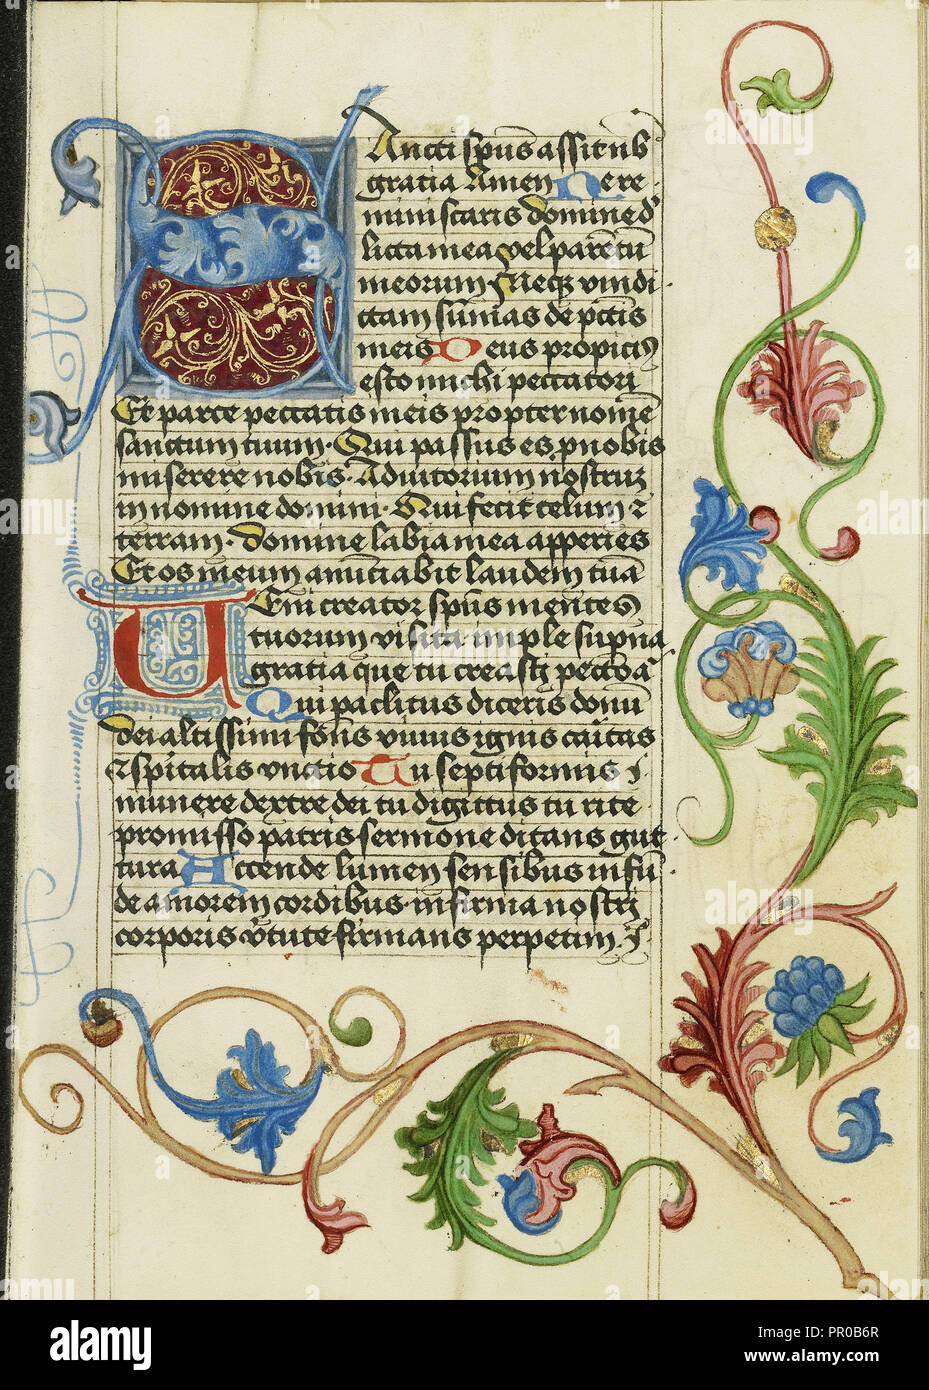 Sancti spūs assit nb̄
gratia Amen Ne re
miniscaris domine d'
licta mea vel parētū
meorum Neqz vindi
ctam sūmas de pctīs
meis Deus propiciꝰ
esto michi peccatori
Et parce peccatis meis propter nomē
sanctum tuum · Qui passus es p nobis
miserere nobis · Adiutorium nostruz
in nomine domini · Qui fecit celum ⁊
terram · Domine labia mea apperies
Et os meum anūciabit laudem tuā
Ueni creator spūs mentes
tuorum visita imple supna
gratia que tu creasti pectora
Qui paclitus diceris donū
dei altissimi fons viuus ignis caritas
⁊ spitalis vnctio Tu septiformis ī
munere dextre dei tu digittus tu rite
promisso patris sermone ditans gut
tura Actende lumen sensibus infū
de amorem cordibus infirma nostri
corporis v̄tute firmans perpetim. ī
alamy
alamy
Image ID: PR0B6R
www.alamy.com